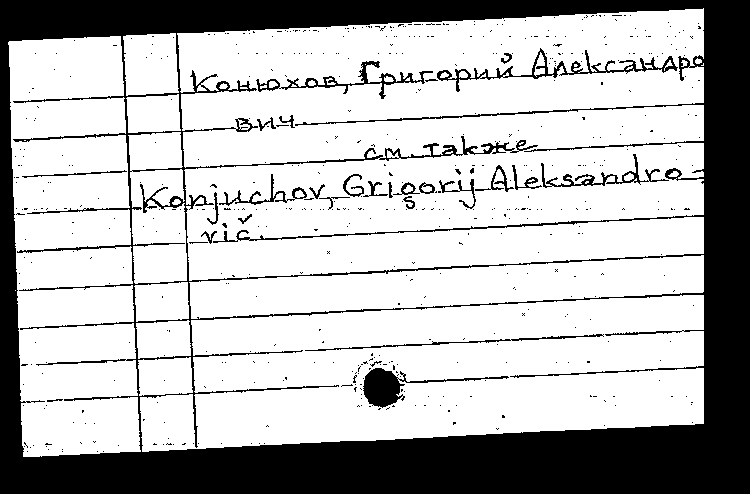 Конюхов, Григорий Александро
вич.
см. также
Konjuchov, Grigorij Aleksandro=
vič.